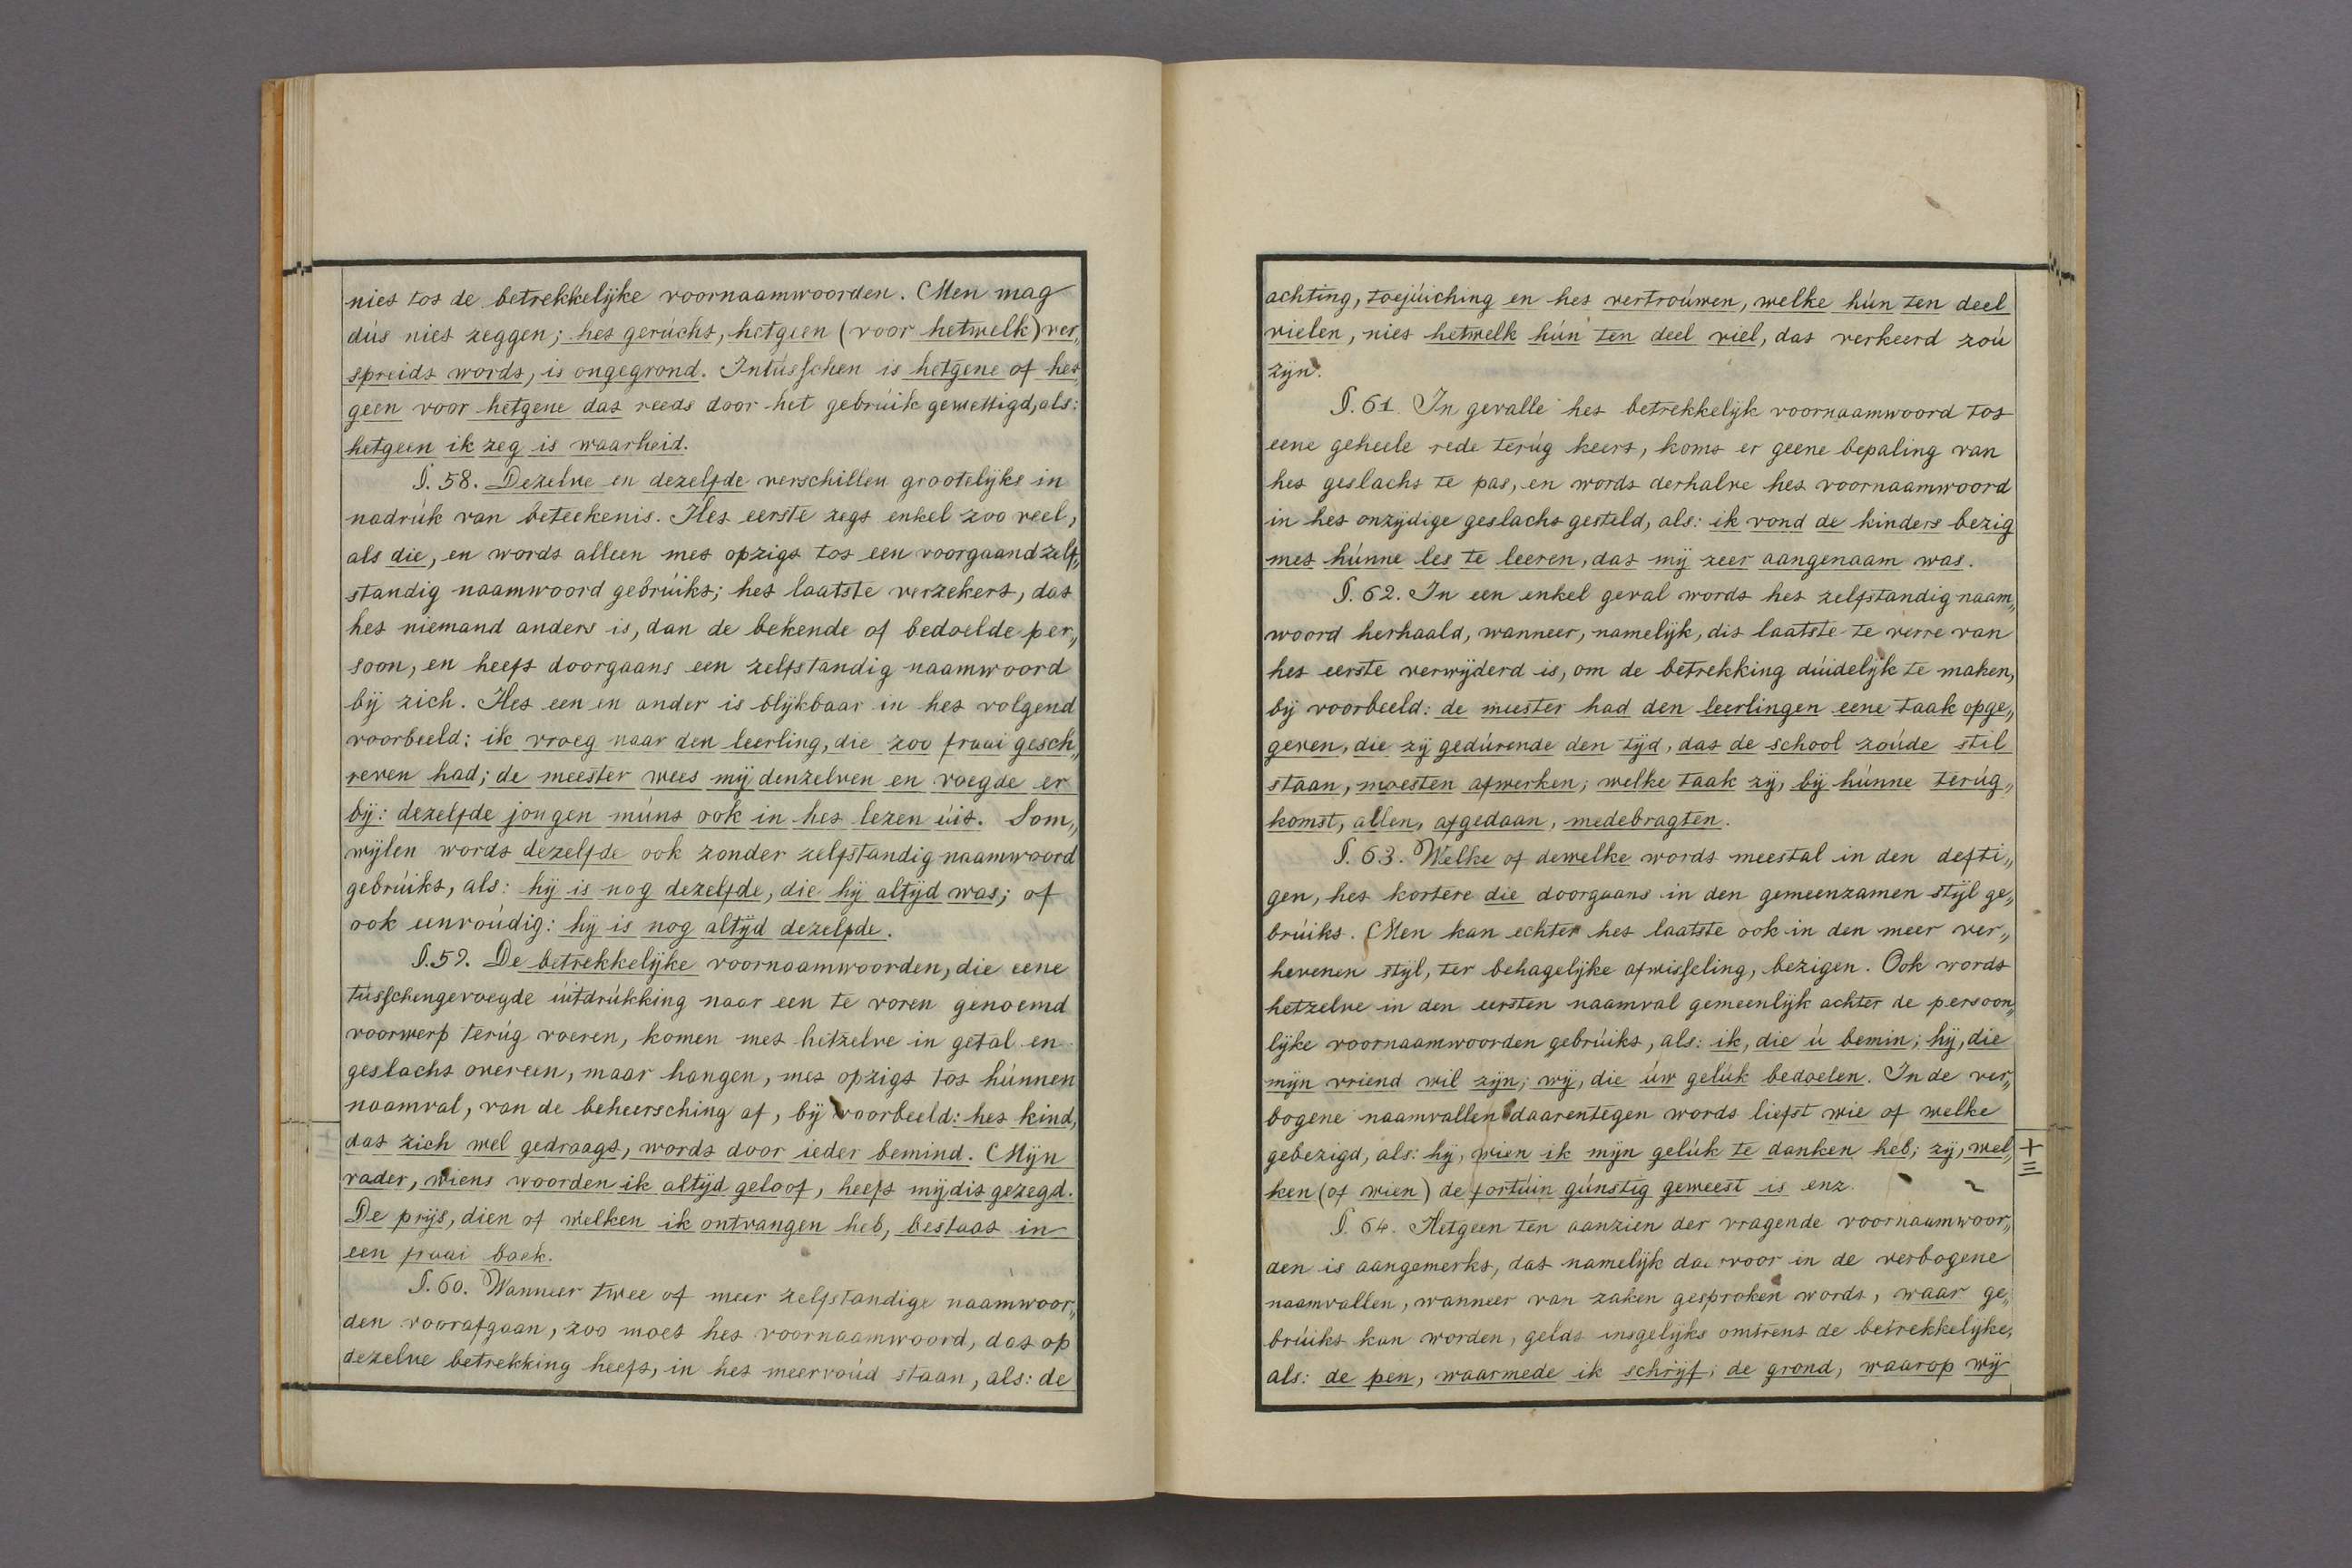 niet tot de betrekkelijke voornaamwoorden. Men mag
dús niet zeggen; het gerúcht, hetgeen (voor hetwelk) ver„
spreidt wordt, is ongegrond. Intússchen is hetgene of het„
geen voor hetgene dat reeds door het gebrúik gewettigd, als:
hetgeen ik zeg is waarheid.
§. 58. Dezelve en dezelfde verschillen grootelijks in
nadrúk van beteekenis. Het eerste zegt enkel zoo veel,
als die, en wordt alleen met opzigt tot een voorgaand zelf„
standig naamwoord gebrúikt; het laatste verzekert, dat
het niemand anders is, dan de bekende of bedoelde per„
soon, en heeft doorgaans een zelfstandig naamwoord
bij zich. Het een en ander is blijkbaar in het volgend
voorbeeld: ik vroeg naar den leerling, die zoo fraai gesch„
reven had; de meester wees mij denzelven en voegde er
bij: dezelfde jongen múnt ook in het lezen úit. Som„
wijlen wordt dezelfde ook zonder zelfstandig naamwoord
gebrúikt, als: hij is nog dezelfde, die hij altijd was; of
ook eenvoúdig: hij is nog altijd dezelfde.
§. 59. De betrekkelijke voornaamwoorden, die eene
tússchengevoegde úitdrúkking naar een te voren genoemd
voorwerp terúg voeren, komen met hetzelve in getal en
geslacht overeen, maar hangen, met opzigt tot húnnen
naamval, van de beheersching af, bij voorbeeld: het kind,
dat zich wel gedraagt, wordt door ieder bemind. Mijn
vader, wiens woorden ik altijd geloof, heeft mij dit gezegd.
De prijs, dien of welken ik ontvangen heb, bestaat in
een fraai boek.
§. 60. Wanneer twee of meer zelfstandige naamwoor„
den voorafgaan, zoo moet het voornaamwoord, dat op
dezelve betrekking heeft, in het meervoúd staan, als: de
achting, toejúiching en het vertroúwen, welke hún ten deel
vielen, niet hetwelk hún ten deel viel, dat verkeerd zoú
zijn.
§. 61. In gevalle het betrekkelijk voornaamwoord tot
eene geheele rede terúg keert, komt er geene bepaling van
het geslacht te pas, en wordt derhalve het voornaamwoord
in het onzijdige geslacht gesteld, als: ik vond de kinders bezig
met húnne les te leeren, dat mij zeer aangenaam was.
§. 62. In een enkel geval wordt het zelfstandig naam„
woord herhaald, wanneer, namelijk, dit laatste te verre van
het eerste verwijderd is, om de betrekking dúidelijk te maken,
bij voorbeeld: de meester had den leerlingen eene taak opge„
geven, die zij gedúrende den tijd, dat de school zoúde stil
staan, moesten afwerken; welke taak zij, bij húnne terúg„
komst, allen, afgedaan, medebragten.
§. 63. Welke of dewelke wordt meestal in den defti„
gen, het kortere die doorgaans in den gemeenzamen stijl ge„
brúikt. Men kan echter het laatste ook in den meer ver„
hevenen stijl, ter behagelijke afwisseling, bezigen. Ook wordt
hetzelve in den eersten naamval gemeenlijk achter de persoon„
lijke voornaamwoorden gebrúikt, als: ik, die ú bemin; hij, die
mijn vriend wil zijn; wij, die úw gelúk bedoelen. In de ver„
bogene naamvallen daarentegen wordt liefst wie of welke
gebezigd, als: hij, wien ik mijn gelúk te danken heb; zij, wel„
ken (of wien) de fortúin gúnstig geweest is enz.
§. 64. Hetgeen ten aanzien der vragende voornaamwoor„
den is aangemerkt, dat namelijk daarvoor in de verbogene
naamvallen, wanneer van zaken gesproken wordt, waar ge„
brúikt kan worden, geldt insgelijks omtrent de betrekkelijke,
als: de pen, waarmede ik schrijf; de grond, waarop wij
十
三